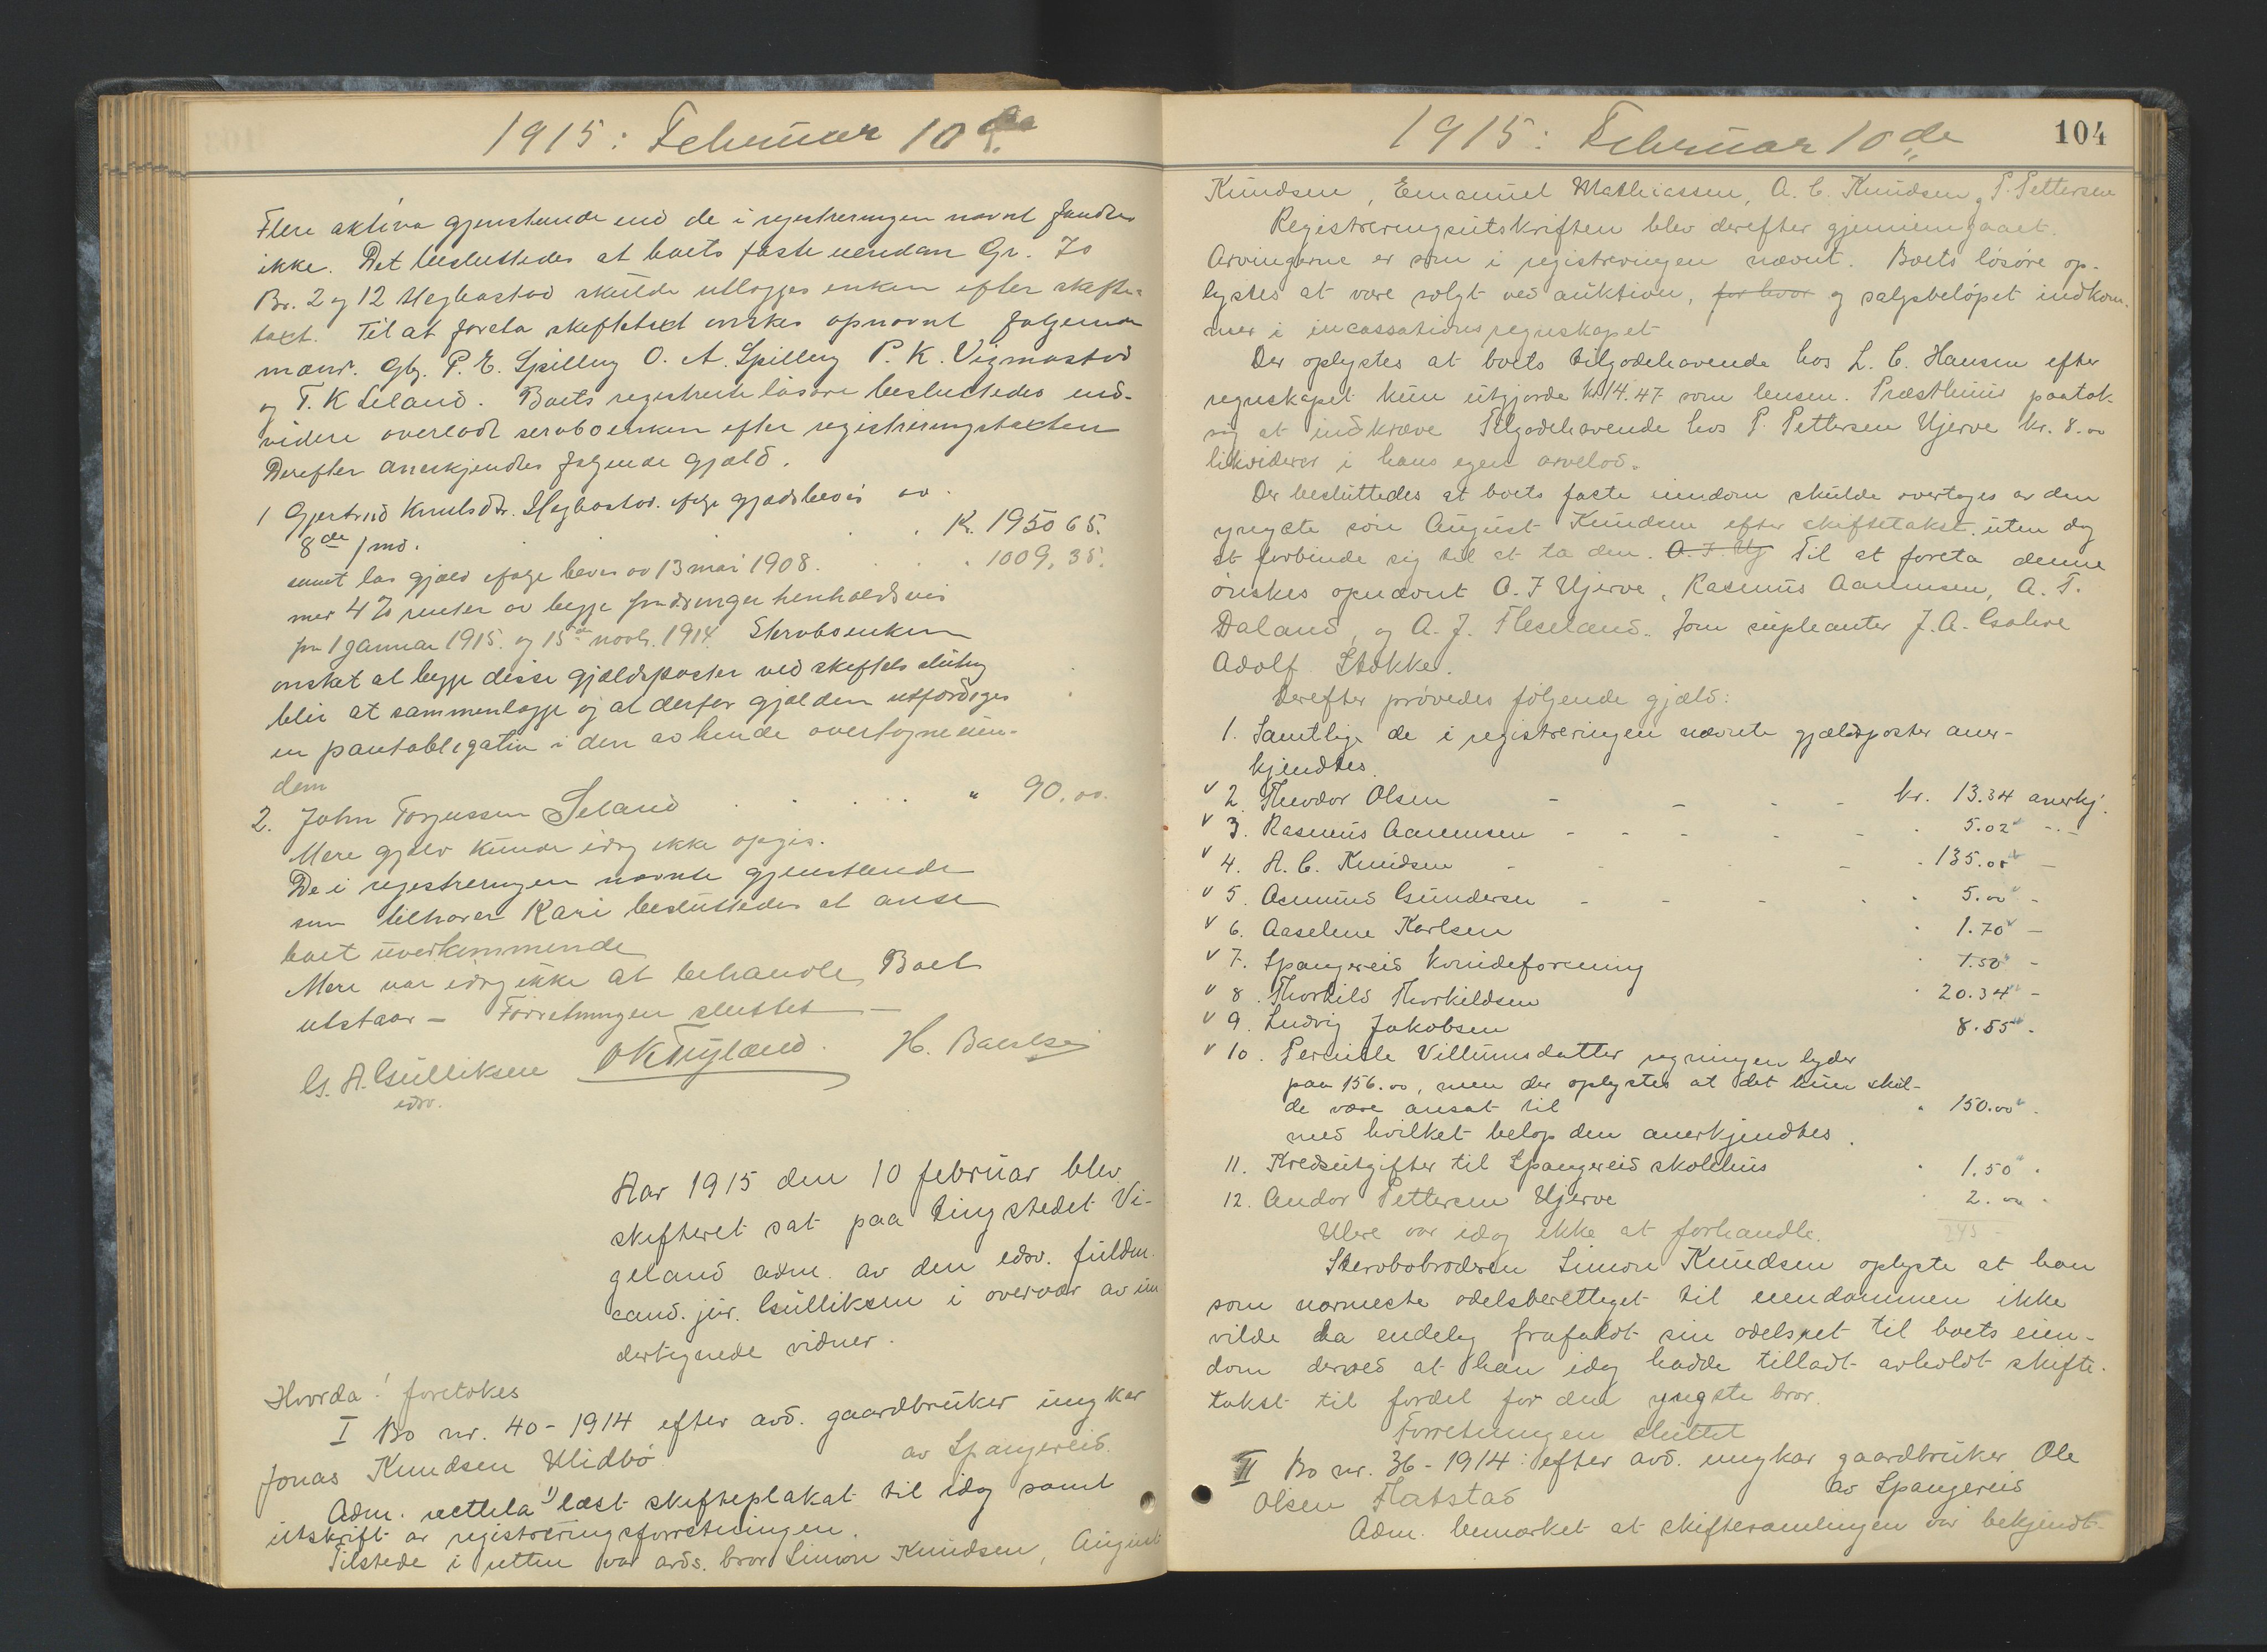 1915: Februar 10de
Flere aktiva gjenstande end de i registreringen nævnt fandtes
ikke. Det besluttedes at boets faste eiendom Gr. 70
Br. 2 og 12 Hegbostad skulde utlægges enken efter skifte-
taxt. Til at foreta skiftetaxt ønskes opnævnt følgende
mænd. Gb. P. E. Spilling O. A. Spilling P. K. Vigmostad
og T. K Leland. Boets registrerte løsøre besluttedes end-
videre overladt servboenken efter registreringstaxten
Derefter anerkjendtes følgende gjæld.
1 Gjertrud Knutsdtr. Hegbostad. ifølge gjældsbevis av
8de / md. . . . Kr. 1950 65.
samt løs gjæld ifølge bevis av 13 mai 1908. . . . 1009, 35.
med 4 % renter av begge fordringer henholdsvis
fra 1 januar 1915. og 15de novbr. 1914. Stervboenken
ønsket at begge disse gjældsposter ved skiftets slutng
blir at sammenlægge og at derfor gjælden utfordiges
en pantobligation i den av hende overtagne eien-
dom
2. John Torjussen Seland . . . . " 90.00.
Mere gjæld kunde idag ikke opgis.
De i registreringen nævnte gjenstande
som tilhører Kari besluttedes at anse
boet uvedkommende
Mere var idag ikke at behandle, Boet
utstaar – Forretningen sluttet –
G. A. Gulliksen OKTryland. H. Baerlsei
edsv.
Aar 1915 den 10 februar blev
skifteret sat paa tingstedet Vi-
geland adm. av den edsv. fuldm.
cand. jur. Gulliksen i overvær av un
dertegnede vidner.
Hvorda! foretokes
I Bo nr. 40 - 1914 efter avd. gaardbruker ungkar
Jonas Knudsen Midbö av Spangereid.
Adm. rettela 1) læst skifteplakat til idag samt
utskrift av registreringsforretningen.
Tilstede i retten var avds. bror Simon Knudsen, August
1915: Februar 10de
104
Knudsen, Emanuel Mathiassen, A. C. Knudsen, P. Pettersen
Registreringsutskriften blev derefter gjennemgaaet.
Arvingerne er som i registreringen nævnt. Boets lösöre op-
lystes at være solgt ved auktion, for hvor og salgsbelöpet indkom-
mer i incassationsregnskapet
Der oplystes at boets tilgodehavende hos L. C. Hansen efter
regnskapet kun utgjorde kr 14.47 som lensm. Præsthuus paatok
sig at indkræve Tilgodehavende hos P. Pettersen Ujerve kr. 8.00
likviderer i hans egen arvelod.
Der besluttedes at boets faste eiendom skulde overtages av den
yngste sön August Knudsen efter skiftetakst. uten dog
at forbinde sig til at ta den. O. I. Uj Til at foreta denne
önskes opnævnt O. I Ujerve, Rasmus Aanensen, A. T.
Daland, og A. J. Fleseland. Som supleanter J. A. Gahre
Adolf Stokke.
Derefter prövedes fölgende gjæld:
1. Samtlige de i registreringen nævnte gjældsposter aner-
kjendtes.
v 2. Theodor Olsen - - - - kr. 13.34 anerkj.
v 3. Rasmus Aanensen - - - - - . 5.02 - . -
v 4. A. C. Knudsen - - - . 135.00 -
v 5. Asmund Gundersen - - - . . 5.00 -
v 6. Aaselene Karlsen . 1.70 -
v 7. Spangereid kvindeforening . 1.50 -
v 8. Thorkild Thorkildsen . 20.34 -
v 9. Ludvig Jakobsen 8.55 .
v 10. Pernille Villumsdatter regningen lyder
paa 156.00, men der oplystes at det kun skul-
de være ansat til . 150.00 .
med hvilket belöp den anerkjendtes.
11. Kredsutgifter til Spangereid skolehus . 1.50 .
12. Andor Pettersen Ujerve . 2.00 .
Mere var idag ikke at forhandle.
Stervbobroderen Simon Knudsen oplyste at han
som nærmeste odelsberettiget til eiendommen ikke
vilde ha endelig frafaldt sin odelsret til boets eien-
dom derved at han idag hadde tilladt avholdt skifte-
takst til fordel for den yngste bror.
Forretningen sluttet
II Bo nr. 36 - 1914 : efter avd. ungkar gaardbruker Ole
Olsen Hatstad av Spangereid
Adm. bemærket at skiftesamlingen var bekjendt-